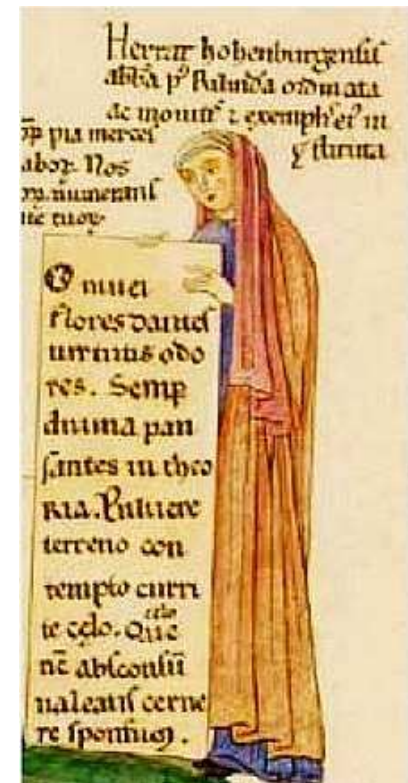 Herrat hohenburgensis
abb̄a p' Rilindā ordinata
ac monitis ⁊ exemplis ei' in
stituta
pia merces
labor. Nos
numerans
O nivei
flores dantes
virtutis odo
res. Semp
divina pau
santes in theo
ria. Pulvere
terreno con
tempto curri
te celo. Que
celo
nc̄ absconsū
valeatis cerne
re sponsum.